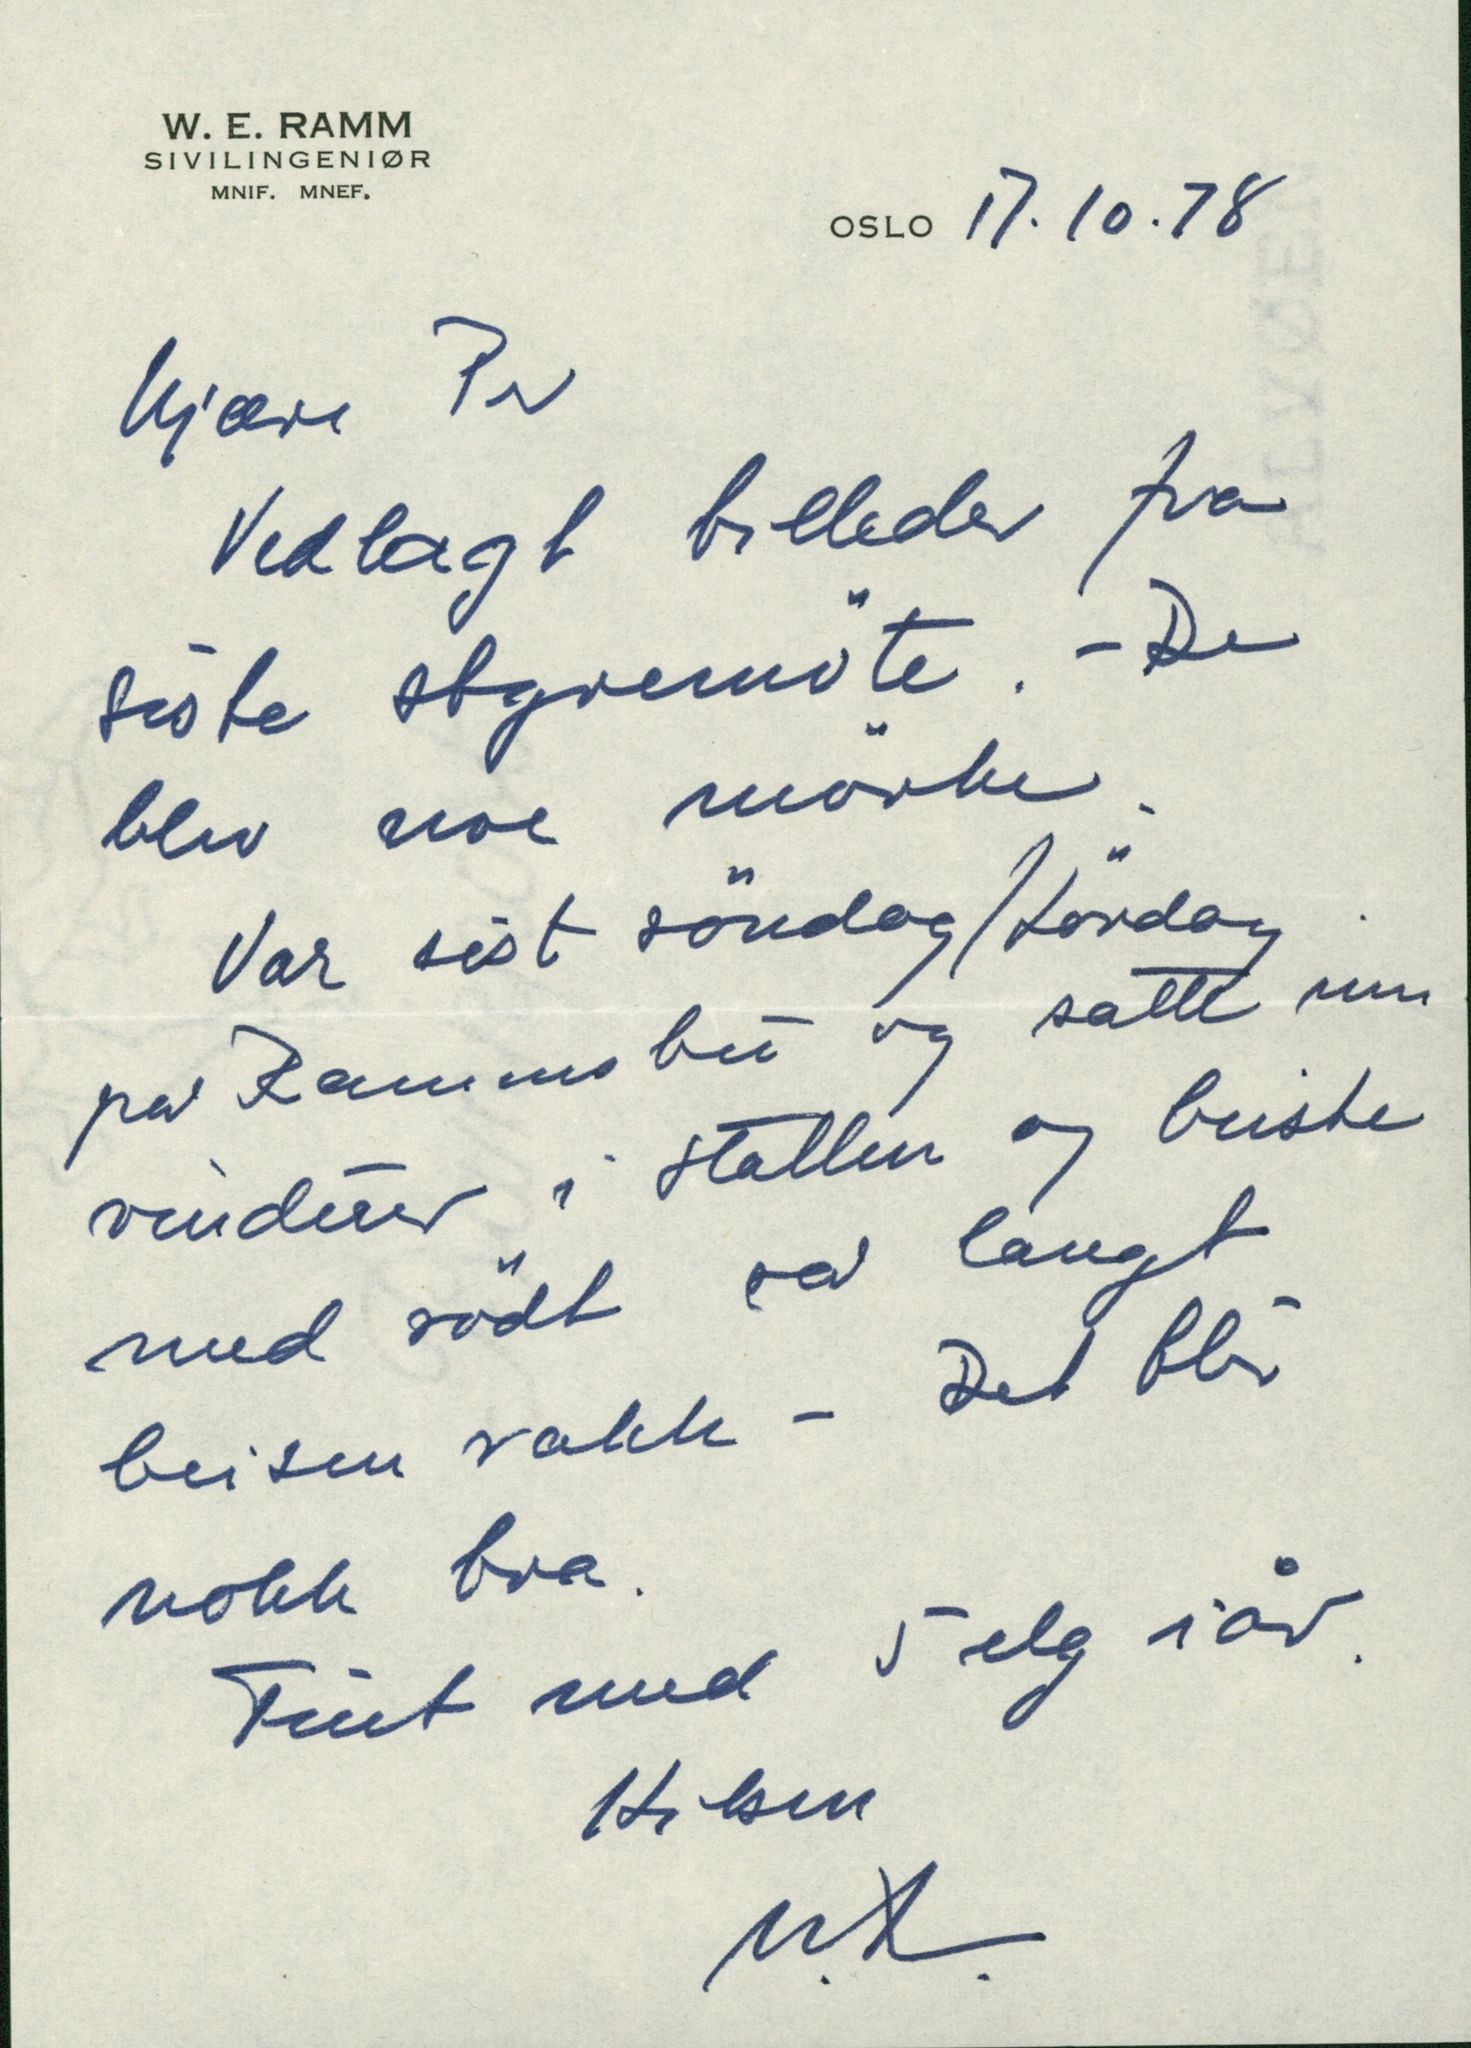 W. E. RAMM
SIVILINGENIØR
MNIF. MNEF.
OSLO 17.10.78
Kjære Per
Vedlagt billeder fra
siste styremöte. - De
blev noe mörke.
Var sist söndag/lördag
på Rammsbu og satte inn
vinduer i stallen og beiste
med rödt så langt
beisen rakk - Det blir
nokk bra.
Fint med 5 elg i år.
Hilsen
W.R.